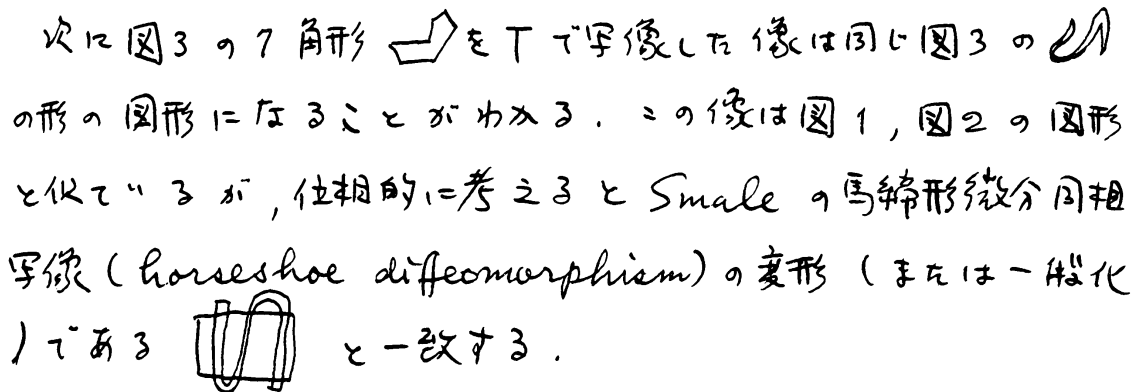 次に図3の7角形 をTで写像した像は同じ図3の
の形の図形になることがわかる．この像は図1，図2の図形
と似ているが，位相的に考えるとSmaleの馬締形微分同相
写像(horseshoe diffeomorphism)の変形(または一般化
)である と一致する．